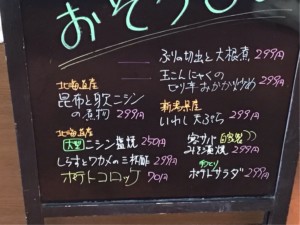 おそうざい
ぶりの切出と大根煮 299円
玉こんにゃくの
ピリ辛おかか炒め 299円
北海道産
昆布と身欠ニシン
の煮物 299円
新潟県産
いわし天ぷら 299円
北海道産
大型ニシン塩焼 250円
しらすとワカメの三杯酢 299円
ポテトコロッケ 70円
寒サバ 自家製
みそ漬焼 299円
手づくり
ポテトサラダ 299円